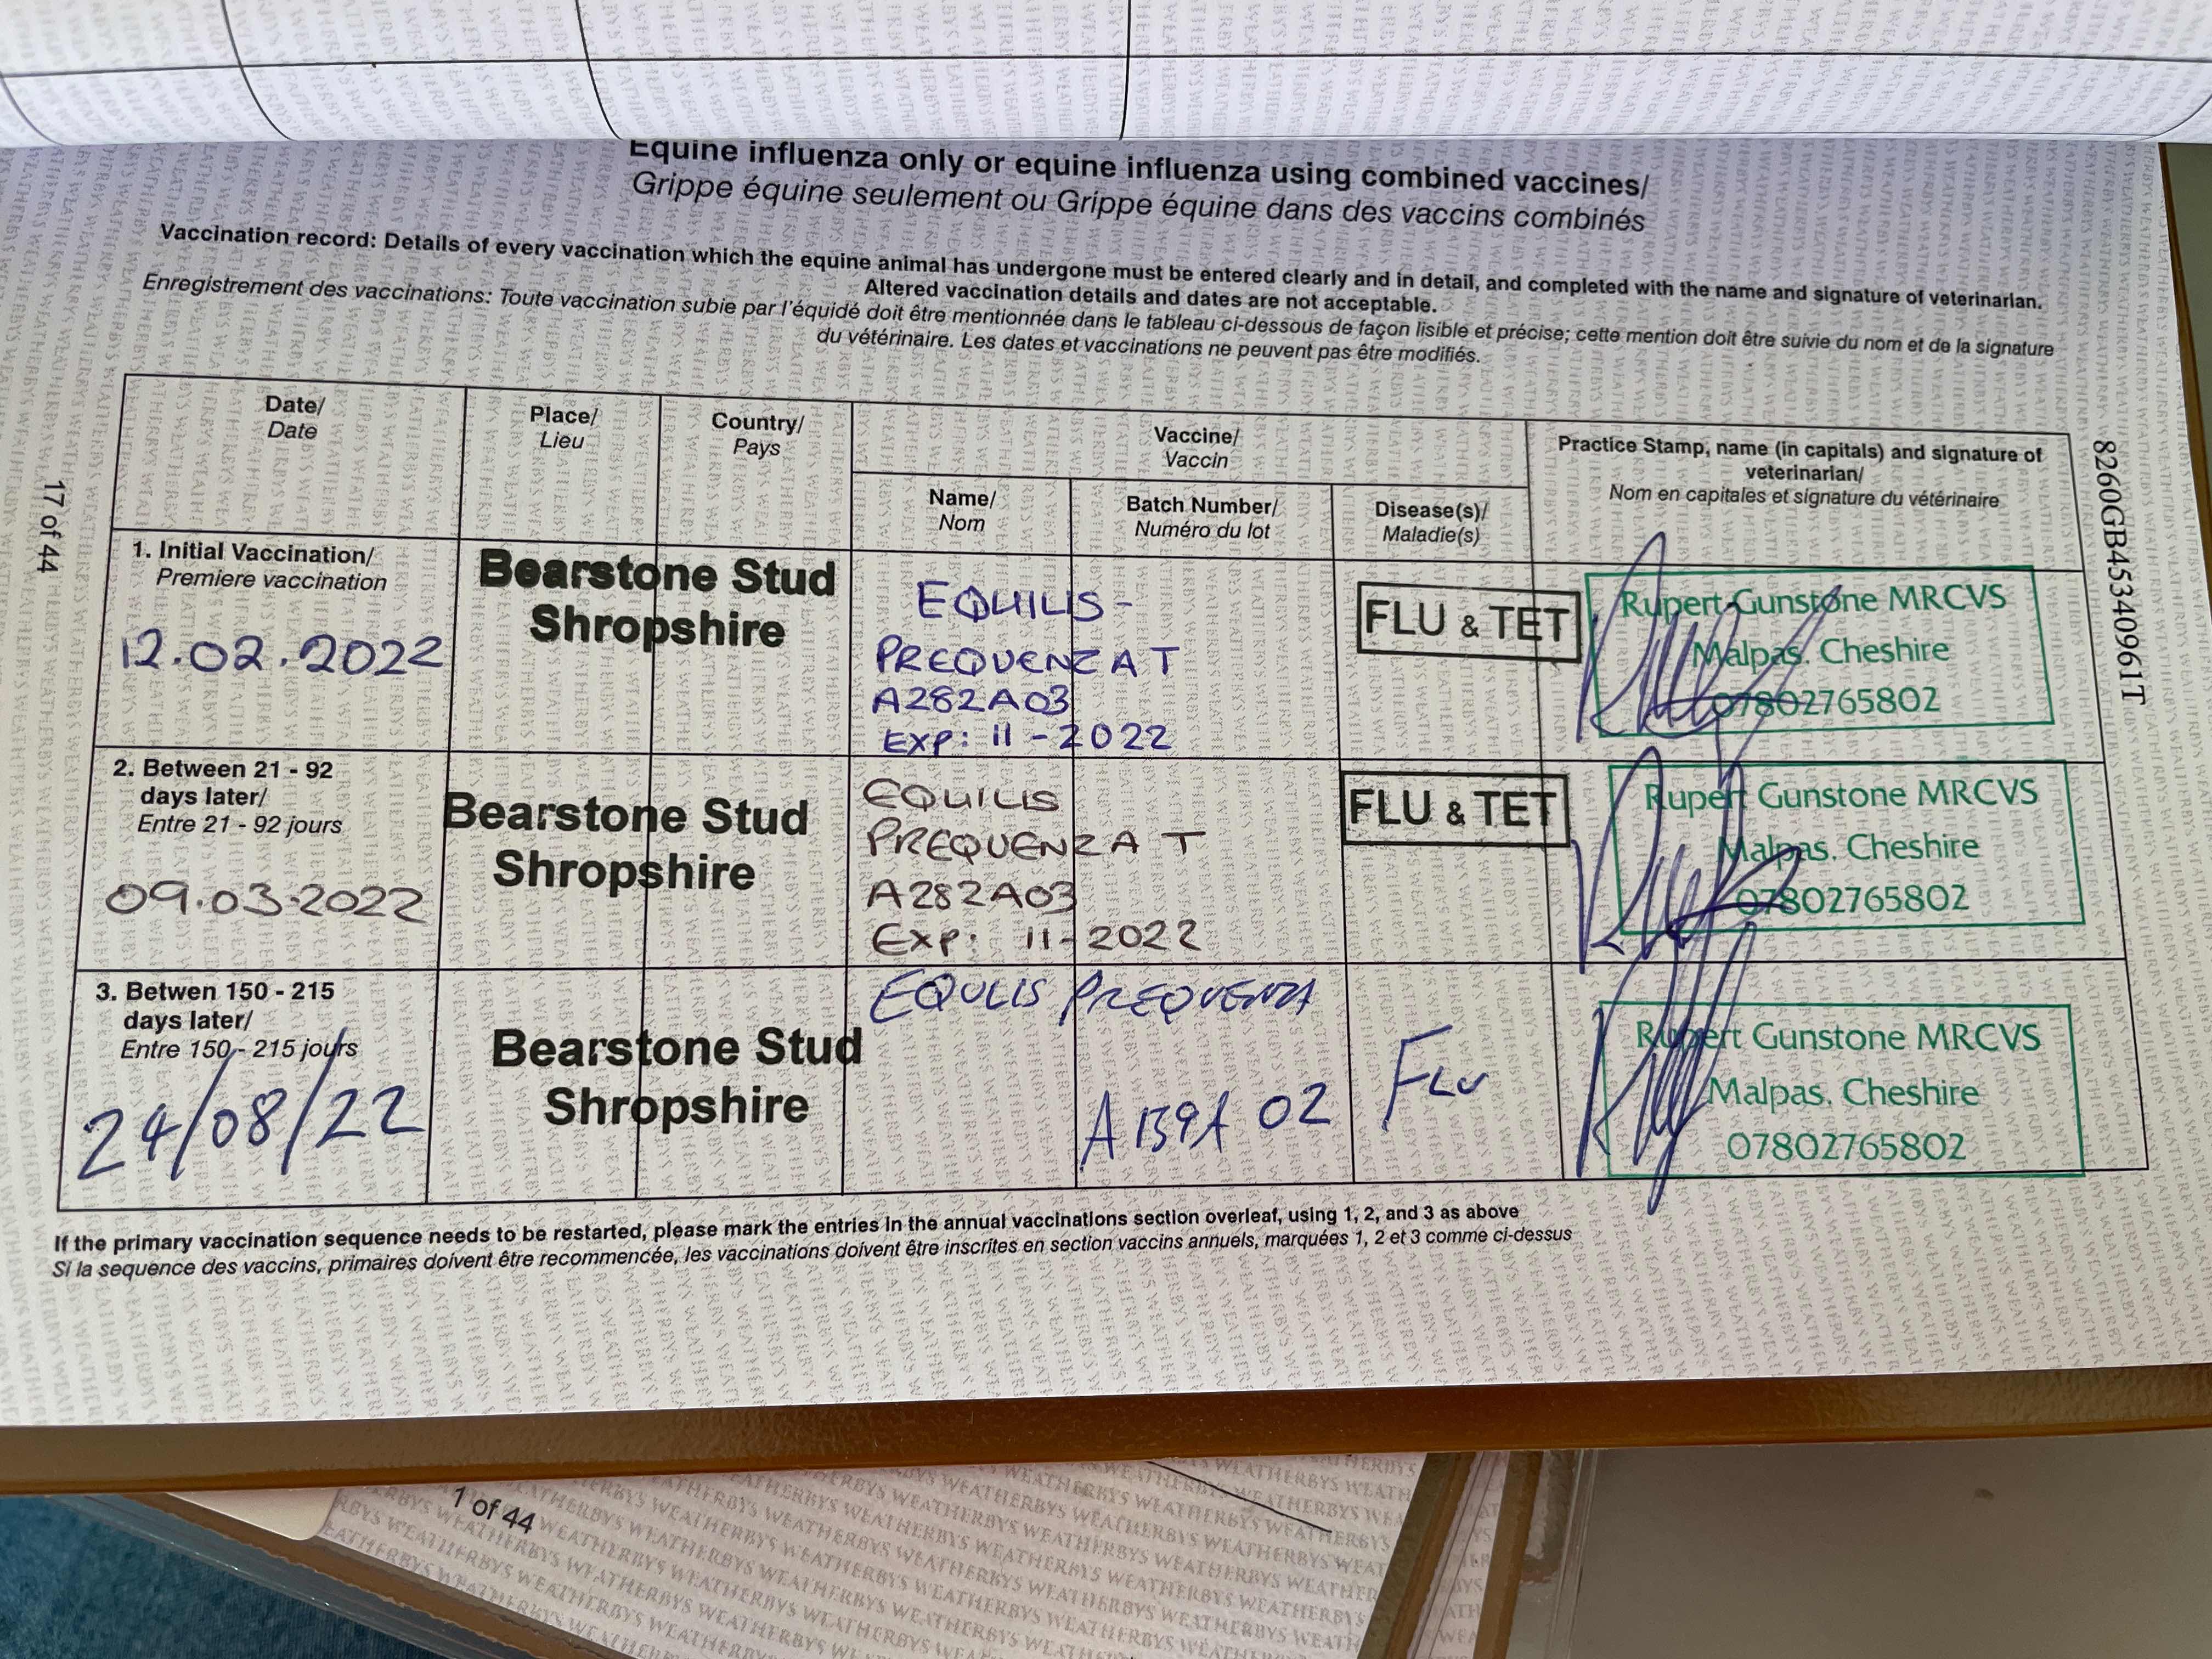 Equine influenza only or equine influenza using combined vaccines/
Grippe équine seulement ou Grippe équine dans des vaccins combinés
Vaccination record: Details of every vaccination which the equine animal has undergone must be entered clearly and in detail, and completed with the name and signature of veterinarian.
Altered vaccination details and dates are not acceptable.
Enregistrement des vaccinations: Toute vaccination subie par l'équidé doit être mentionnée dans le tableau ci-dessous de façon lisible et précise; cette mention doit être suivie du nom et de la signature
du vétérinaire. Les dates et vaccinations ne peuvent pas être modifiés.
Date/
Date
Place/
Lieu
Country/
Pays
Vaccine/
Vaccin
Name/
Nom
Batch Number/
Numéro du lot
Disease(s)/
Maladie(s)
Practice Stamp, name (in capitals) and signature of
veterinarian/
Nom en capitales et signature du vétérinaire
1. Initial Vaccination/
Premiere vaccination
12.02.2022
Bearstone Stud
Shropshire
EQUILIS-
PREQUENZA T
A282A03
EXP: 11-2022
FLU & TET
Rupert Gunstone MRCVS
Malpas. Cheshire
07802765802
2. Between 21 - 92
days later/
Entre 21 - 92 jours
09.03.2022
Bearstone Stud
Shropshire
EQUILIS
PREQUENZA T
A282A03
EXP: 11-2022
FLU & TET
Rupert Gunstone MRCVS
Malpas. Cheshire
07802765802
3. Betwen 150 - 215
days later/
Entre 150 - 215 jours
24/08/22
Bearstone Stud
Shropshire
EQULIS PREQUENZA
02
FLU
Rupert Gunstone MRCVS
Malpas. Cheshire
07802765802
If the primary vaccination sequence needs to be restarted, please mark the entries in the annual vaccinations section overleaf, using 1, 2, and 3 as above
Si la sequence des vaccins, primaires doivent être recommencée, les vaccinations doivent être inscrites en section vaccins annuels, marquées 1, 2 et 3 comme ci-dessus
17 of 44
8260GB45340961T
1 of 44
WEATHERBYS WEATHERBYS WEATHERBYS WEATHERBYS